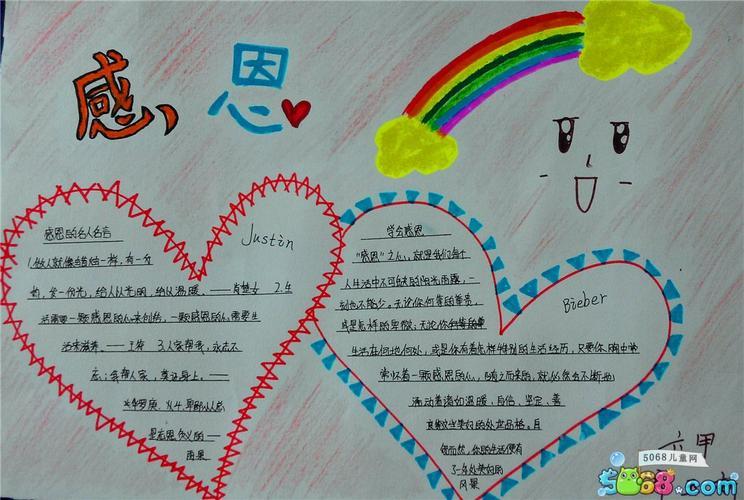 感恩
感恩的名人名言
Justin
1.做人就像蜡烛一样,有一分
热,发一份光,给人以光明,给以温暖。——肖楚女 2.生
活需要一颗感恩的心来创造,一颗感恩的心需要生
活来滋养。——王符 3.人家帮我,永志不
忘;我帮人家,莫记心上。——
华罗庚
是忘恩负义的——
雨果
学会感恩
“感恩”之心,就是我们每个
人生活中不可或缺的阳光雨露,一
刻也不能少。无论你何等的尊贵,
或是怎样的卑微;无论你
生活在何地何处,或是你有着怎样特别的生活经历,只要你胸中常
常怀着一颗感恩的心,随之而来的,就必然会不断地
涌动着诸如温暖、自信、坚定、善
良等这些美好的处世品格。自
然而然,你的生活便有
了一处美丽的
风景
Bieber
六甲
5068儿童网
5068.com